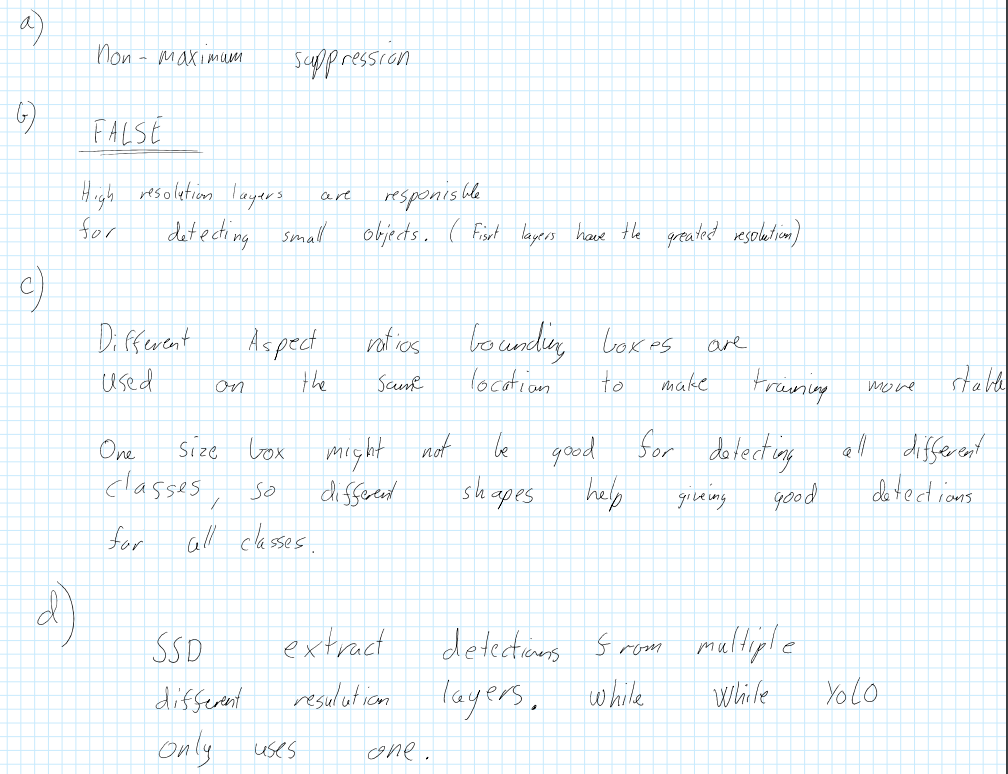 a)
Non-maximum suppression
b)
FALSE
High resolution layers are responisble
for detecting small objects. (Fisrt layers have the greatest resolution)
c)
Different Aspect ratios bounding boxes are
used on the same location to make training more stable
One size box might not be good for detecting all different
classes, so different shapes help giveing good detections
for all classes.
d)
SSD extract detections from multiple
different resulution layers. While While YOLO
only uses one.